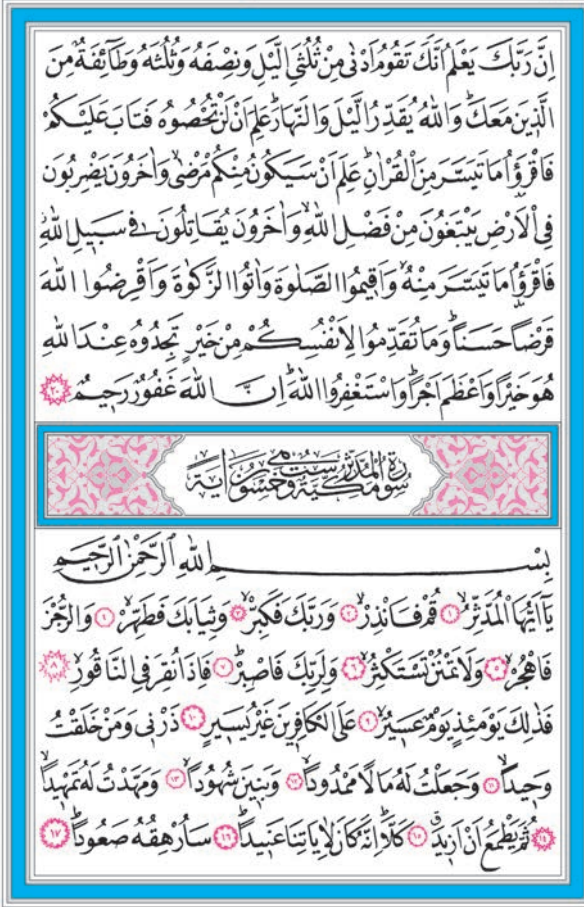 اِنَّ رَبَّكَ يَعْلَمُ اَنَّكَ تَقُومُ اَدْنٰى مِنْ ثُلُثَيِ الَّيْلِ وَنِصْفَهُ وَثُلُثَهُ وَطَٓائِفَةٌ مِنَ
الَّذ۪ينَ مَعَكَۜ وَاللّٰهُ يُقَدِّرُ الَّيْلَ وَالنَّهَارَۜ عَلِمَ اَنْ لَنْ تُحْصُوهُ فَتَابَ عَلَيْكُمْ
فَاقْرَؤُ۫ا مَا تَيَسَّرَ مِنَ الْقُرْاٰنِۜ عَلِمَ اَنْ سَيَكُونُ مِنْكُمْ مَرْضٰىۙ وَاٰخَرُونَ يَضْرِبُونَ
فِي الْاَرْضِ يَبْتَغُونَ مِنْ فَضْلِ اللّٰهِۙ وَاٰخَرُونَ يُقَاتِلُونَ ف۪ي سَب۪يلِ اللّٰهِۘ
فَاقْرَؤُ۫ا مَا تَيَسَّرَ مِنْهُۙ وَاَق۪يمُوا الصَّلٰوةَ وَاٰتُوا الزَّكٰوةَ وَاَقْرِضُوا اللّٰهَ
قَرْضًا حَسَنًاۜ وَمَا تُقَدِّمُوا لِاَنْفُسِكُمْ مِنْ خَيْرٍ تَجِدُوهُ عِنْدَ اللّٰهِ
هُوَ خَيْرًا وَاَعْظَمَ اَجْرًاۜ وَاسْتَغْفِرُوا اللّٰهَۜ اِنَّ اللّٰهَ غَفُورٌ رَح۪يمٌ ﴿٢٠﴾
سُورَةُ الْمُدَّثِّرِ مَكِّيَّةٌ وَهِيَ سِتٌّ وَخَمْسُونَ اٰيَةً
بِسْمِ اللّٰهِ الرَّحْمٰنِ الرَّح۪يمِ
يَٓا اَيُّهَا الْمُدَّثِّرُۙ ﴿١﴾ قُمْ فَاَنْذِرْۙ ﴿٢﴾ وَرَبَّكَ فَكَبِّرْۙ ﴿٣﴾ وَثِيَابَكَ فَطَهِّرْۙ ﴿٤﴾ وَالرُّجْزَ
فَاهْجُرْۙ ﴿٥﴾ وَلَا تَمْنُنْ تَسْتَكْثِرُۙ ﴿٦﴾ وَلِرَبِّكَ فَاصْبِرْۜ ﴿٧﴾ فَاِذَا نُقِرَ فِي النَّاقُورِۙ ﴿٨﴾
فَذٰلِكَ يَوْمَئِذٍ يَوْمٌ عَس۪يرٌۙ ﴿٩﴾ عَلَى الْكَافِر۪ينَ غَيْرُ يَس۪يرٍ ﴿١٠﴾ ذَرْن۪ي وَمَنْ خَلَقْتُ
وَح۪يدًاۙ ﴿١١﴾ وَجَعَلْتُ لَهُ مَالًا مَمْدُودًاۙ ﴿١٢﴾ وَبَن۪ينَ شُهُودًاۙ ﴿١٣﴾ وَمَهَّدْتُ لَهُ تَمْه۪يدًاۙ
﴿١٤﴾ ثُمَّ يَطْمَعُ اَنْ اَز۪يدَۗ ﴿١٥﴾ كَلَّاۜ اِنَّهُ كَانَ لِاٰيَاتِنَا عَن۪يدًاۜ ﴿١٦﴾ سَاُرْهِقُهُ صَعُودًاۜ ﴿١٧﴾